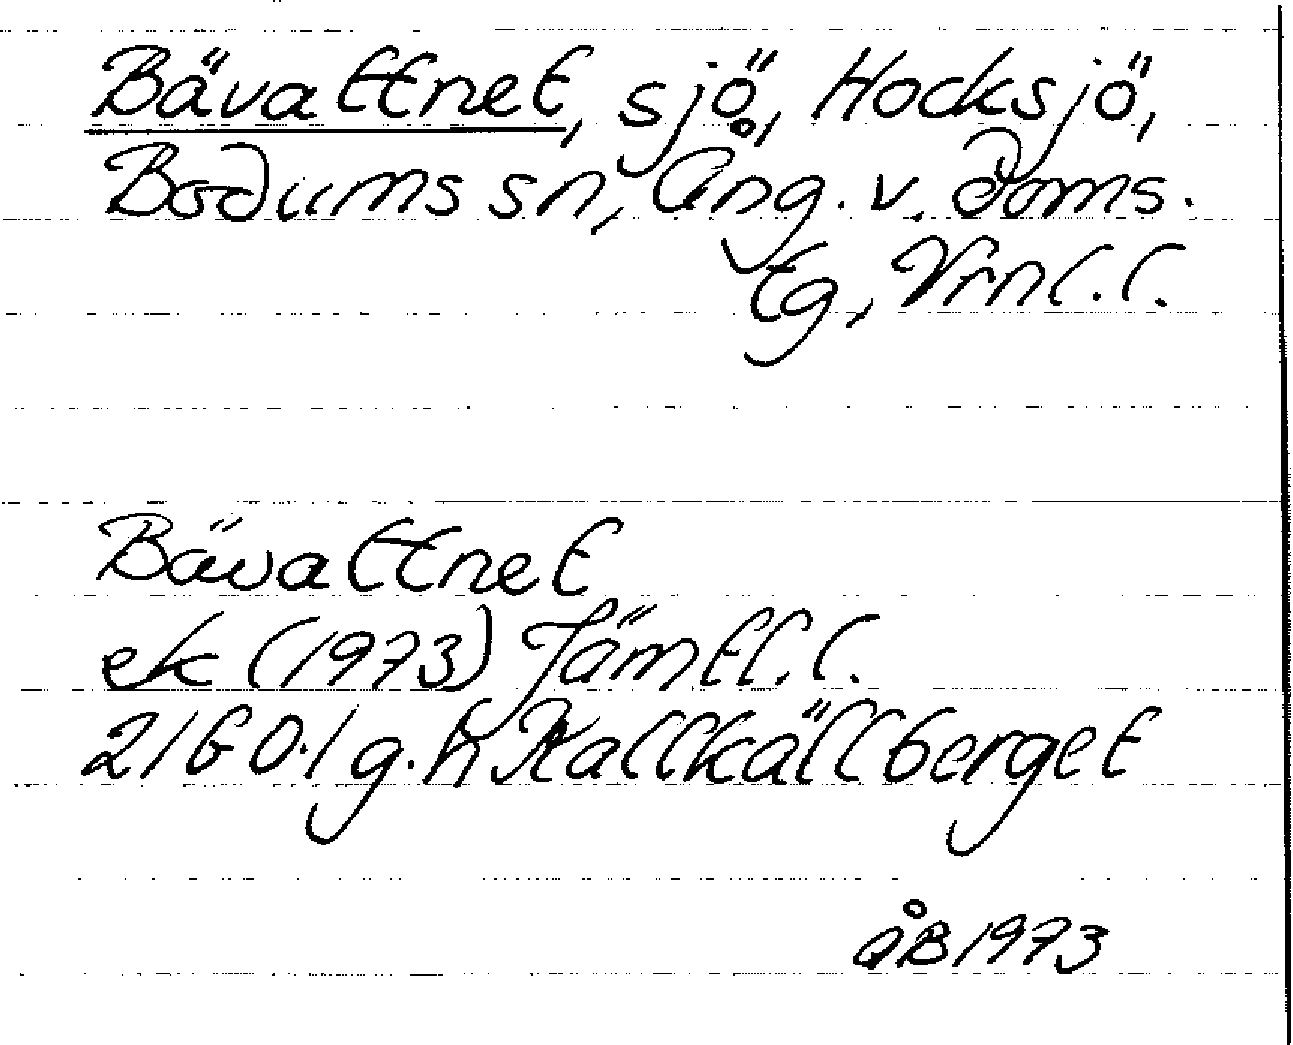 Bävattnet, sjö, Hocksjö,
Bodums sn, Ång. v. doms.
tg, Vrnl.l.
Bävattnet
ek (1973) Jämtl.l.
21G 0.1 g.h Kallkällberget
ÅB 1973